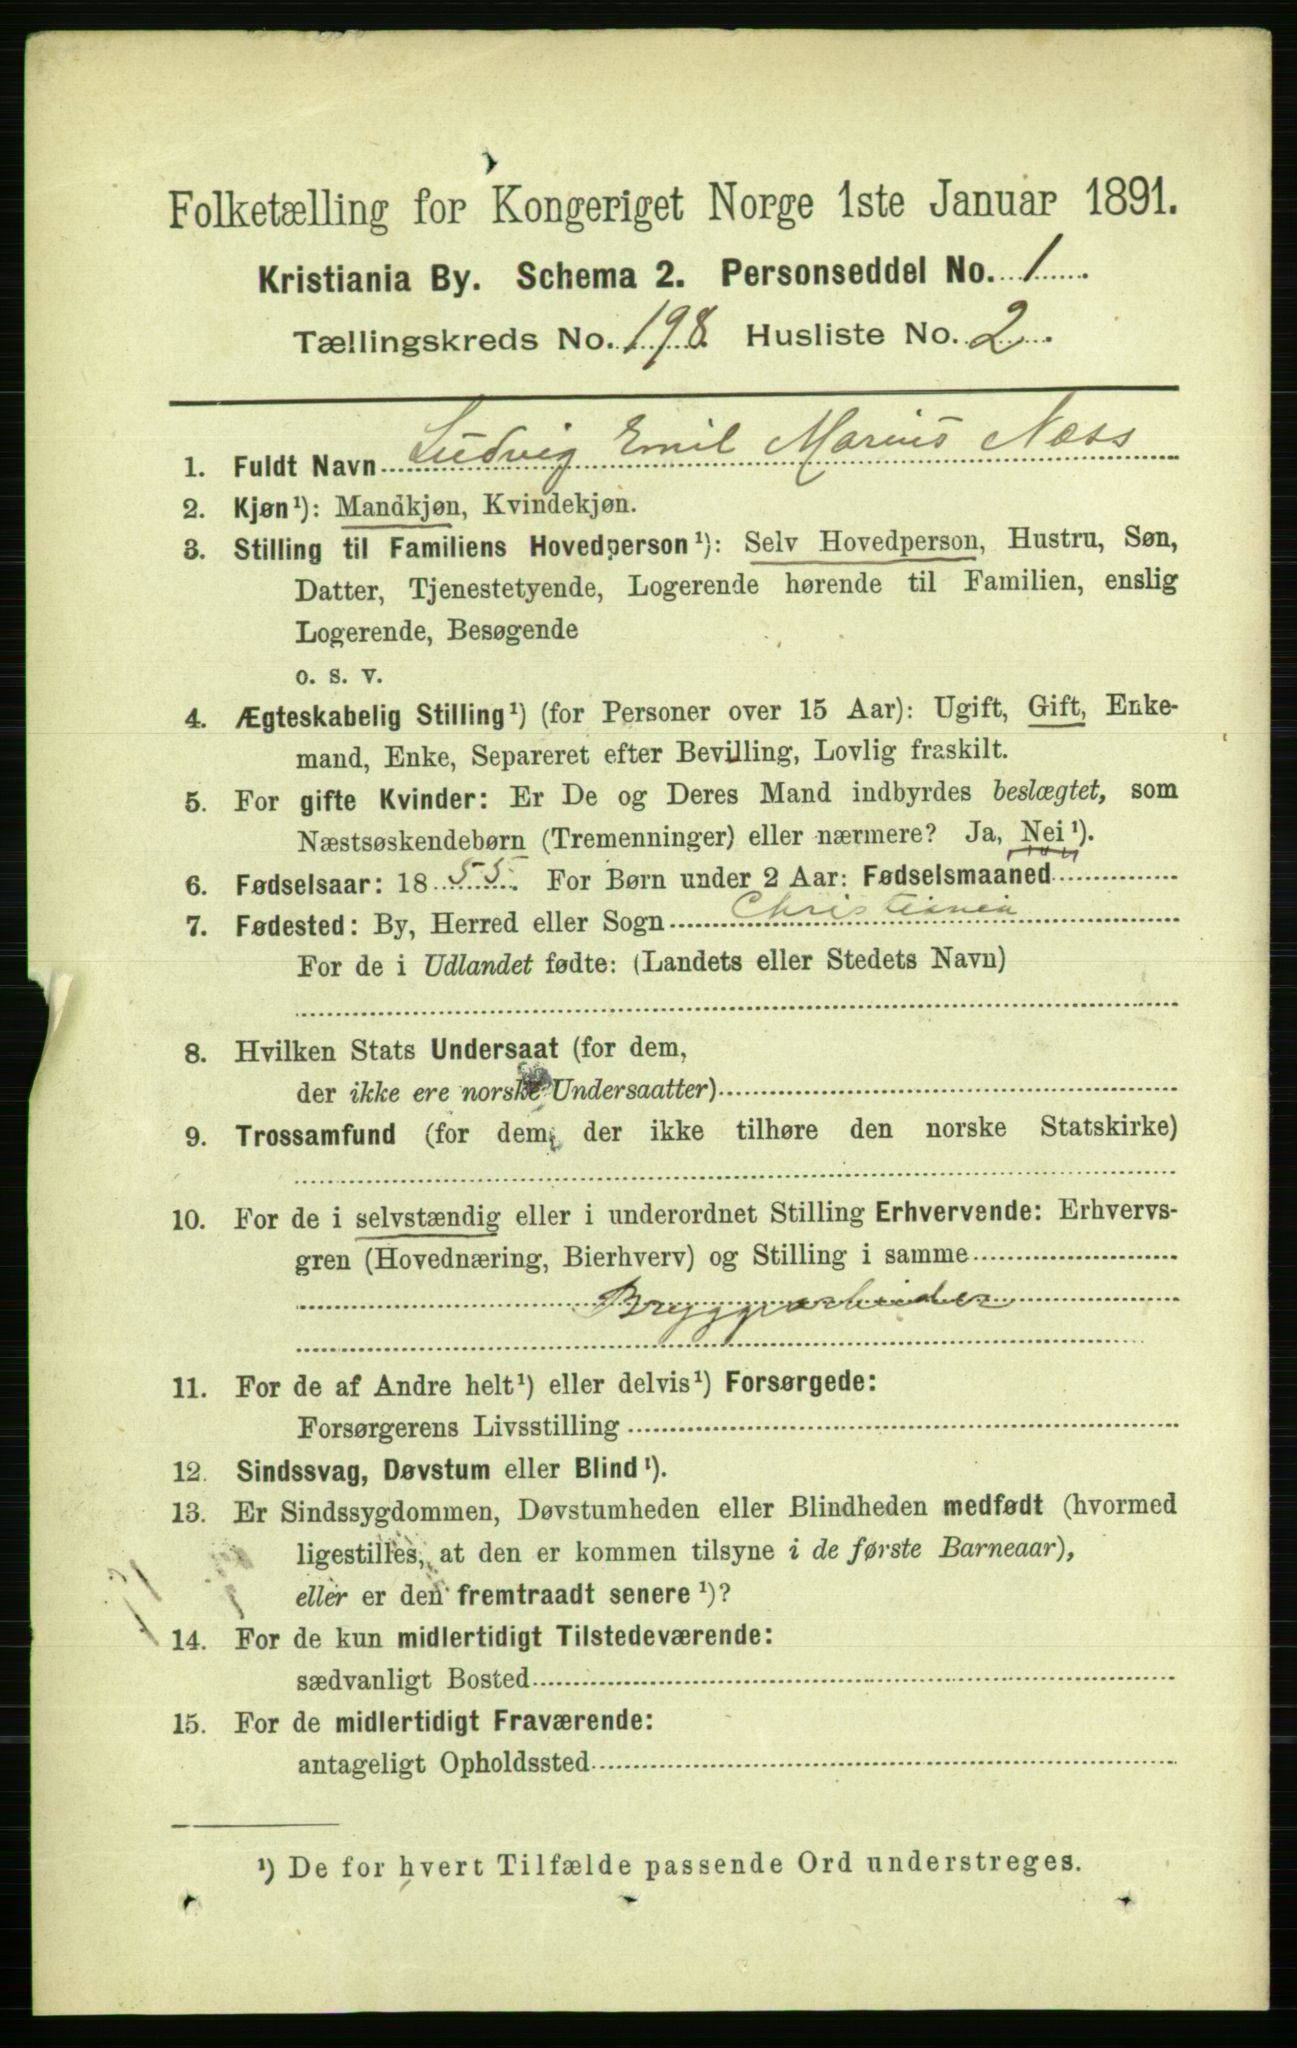 Folketælling for Kongeriget Norge 1ste Januar 1891.
Kristiania By. Schema 2. Personseddel No. 1
Tællingskreds No. 198. Husliste No. 2.
1. Fuldt Navn Ludvig Emil Marius Næss
2. Kjøn¹): Mandkjøn, Kvindekjøn.
3. Stilling til Familiens Hovedperson¹): Selv Hovedperson, Hustru, Søn,
Datter, Tjenestetyende, Logerende hørende til Familien, enslig
Logerende, Besøgende
o. s. v.
4. Ægteskabelig Stilling¹) (for Personer over 15 Aar): Ugift, Gift, Enke-
mand, Enke, Separeret efter Bevilling, Lovlig fraskilt.
5. For gifte Kvinder: Er De og Deres Mand indbyrdes beslægtet, som
Næstsøskendebørn (Tremenninger) eller nærmere? Ja, Nei¹).
6. Fødselsaar: 1855. For Børn under 2 Aar: Fødselsmaaned
7. Fødested: By, Herred eller Sogn Christiania
For de i Udlandet fødte: (Landets eller Stedets Navn)
8. Hvilken Stats Undersaat (for dem,
der ikke ere norske Undersaatter)
9. Trossamfund (for dem, der ikke tilhøre den norske Statskirke)
10. For de i selvstændig eller i underordnet Stilling Erhvervende: Erhvervs-
gren (Hovednæring, Bierhverv) og Stilling i samme
Bryggearbeider
11. For de af Andre helt¹) eller delvis¹) Forsørgede:
Forsørgerens Livsstilling
12. Sindssvag, Døvstum eller Blind¹).
13. Er Sindssygdommen, Døvstumheden eller Blindheden medfødt (hvormed
ligestilles, at den er kommen tilsyne i de første Barneaar),
eller er den fremtraadt senere¹)?
14. For de kun midlertidigt Tilstedeværende:
sædvanligt Bosted
15. For de midlertidigt Fraværende:
antageligt Opholdssted
¹) De for hvert Tilfælde passende Ord understreges.